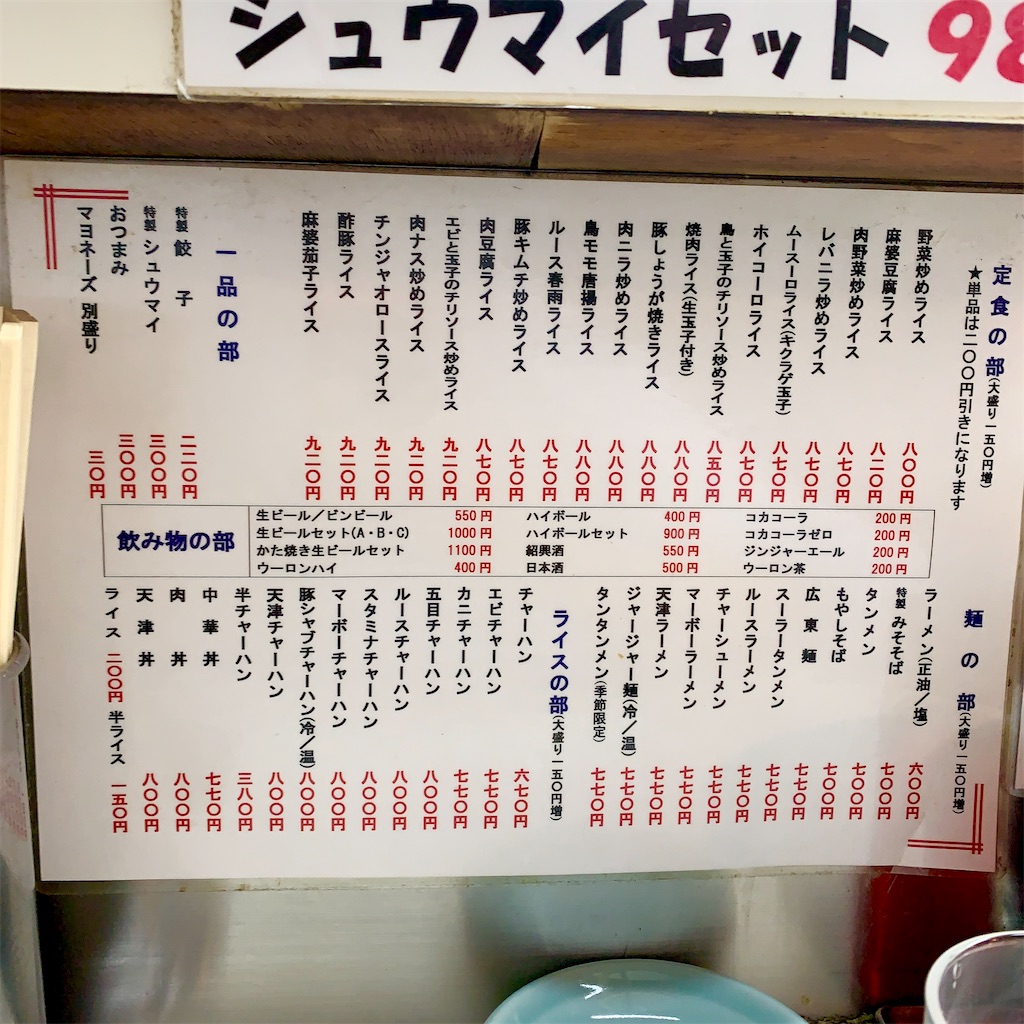 シュウマイセット 98
定食の部(大盛り一五〇円増)
★単品は二〇〇円引きになります
野菜炒めライス 八〇〇円
麻婆豆腐ライス 八二〇円
肉野菜炒めライス 八七〇円
レバニラ炒めライス 八七〇円
ムースーロライス(キクラゲ玉子) 八七〇円
ホイコーロライス 八七〇円
鳥と玉子のチリソース炒めライス 八五〇円
焼肉ライス(生玉子付き) 八八〇円
豚しょうが焼きライス 八八〇円
肉ニラ炒めライス 八八〇円
鳥モモ唐揚ライス 八八〇円
ルース春雨ライス 八七〇円
豚キムチ炒めライス 八七〇円
肉豆腐ライス 八七〇円
エビと玉子のチリソース炒めライス 九二〇円
肉ナス炒めライス 九二〇円
チンジャオロースライス 九二〇円
酢豚ライス 九二〇円
麻婆茄子ライス 九二〇円
一品の部
特製 餃子 二二〇円
特製 シュウマイ 三〇〇円
おつまみ 三〇〇円
マヨネーズ 別盛り 三〇円
飲み物の部
生ビール／ビンビール 550円
生ビールセット(A・B・C) 1000円
かた焼き生ビールセット 1100円
ウーロンハイ 400円
ハイボール 400円
ハイボールセット 900円
紹興酒 550円
日本酒 500円
コカコーラ 200円
コカコーラゼロ 200円
ジンジャーエール 200円
ウーロン茶 200円
麺の部(大盛り一五〇円増)
ラーメン(正油／塩) 六〇〇円
特製 みそそば 七〇〇円
タンメン 七〇〇円
もやしそば 七〇〇円
広東麺 七〇〇円
スーラータンメン 七七〇円
ルースラーメン 七七〇円
チャーシューメン 七七〇円
マーボーラーメン 七七〇円
天津ラーメン 七七〇円
ジャージャー麺(冷／温) 七七〇円
タンタンメン(季節限定) 七七〇円
ライスの部(大盛り一五〇円増)
チャーハン 六七〇円
エビチャーハン 七七〇円
カニチャーハン 七七〇円
五目チャーハン 八〇〇円
ルースチャーハン 八〇〇円
スタミナチャーハン 八〇〇円
マーボーチャーハン 八〇〇円
豚シャブチャーハン(冷／温) 八〇〇円
天津チャーハン 八〇〇円
半チャーハン 三八〇円
中華丼 七七〇円
肉丼 八〇〇円
天津丼 八〇〇円
ライス 二〇〇円 半ライス 一五〇円